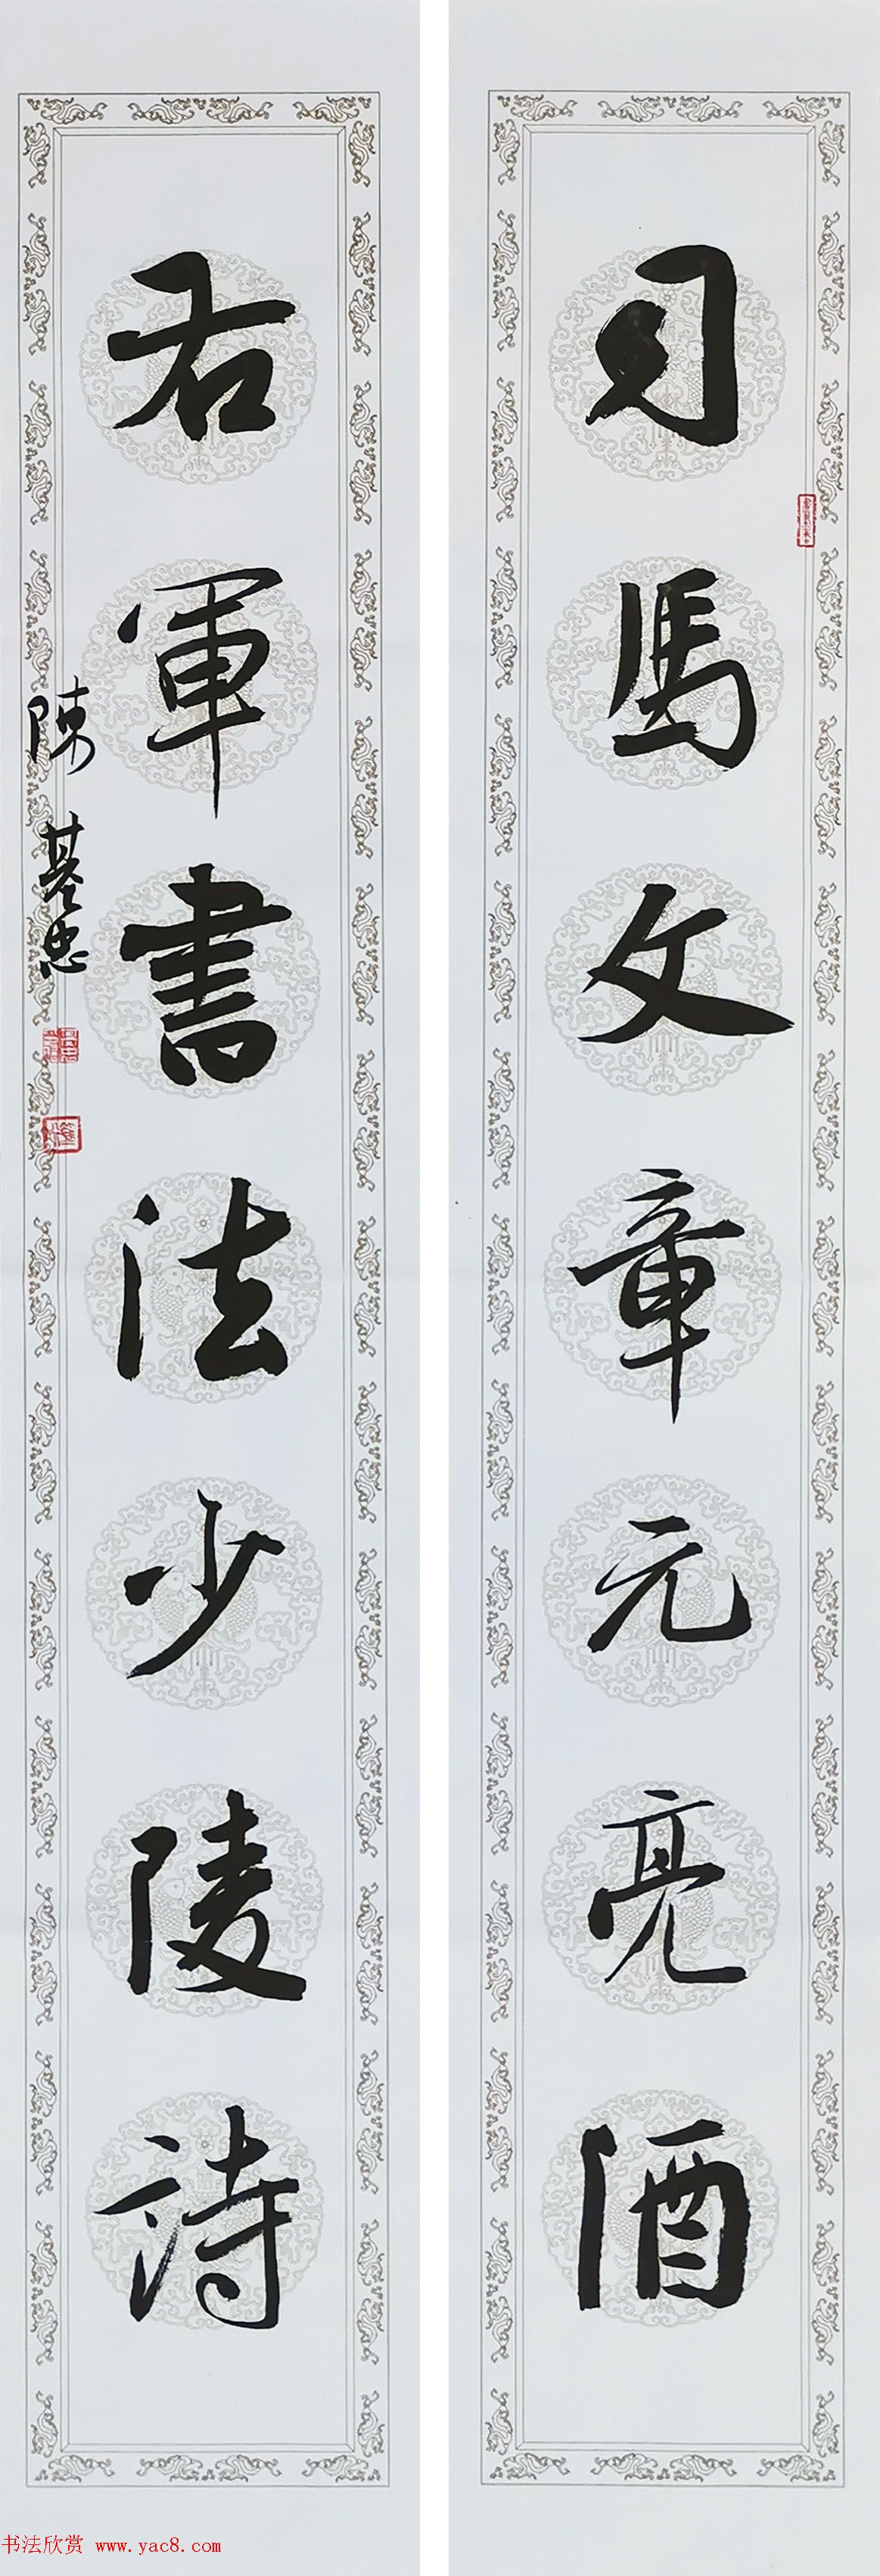 司馬文章元亮酒
右軍書法少陵詩
陳基忠
书法欣赏 www.yac8.com